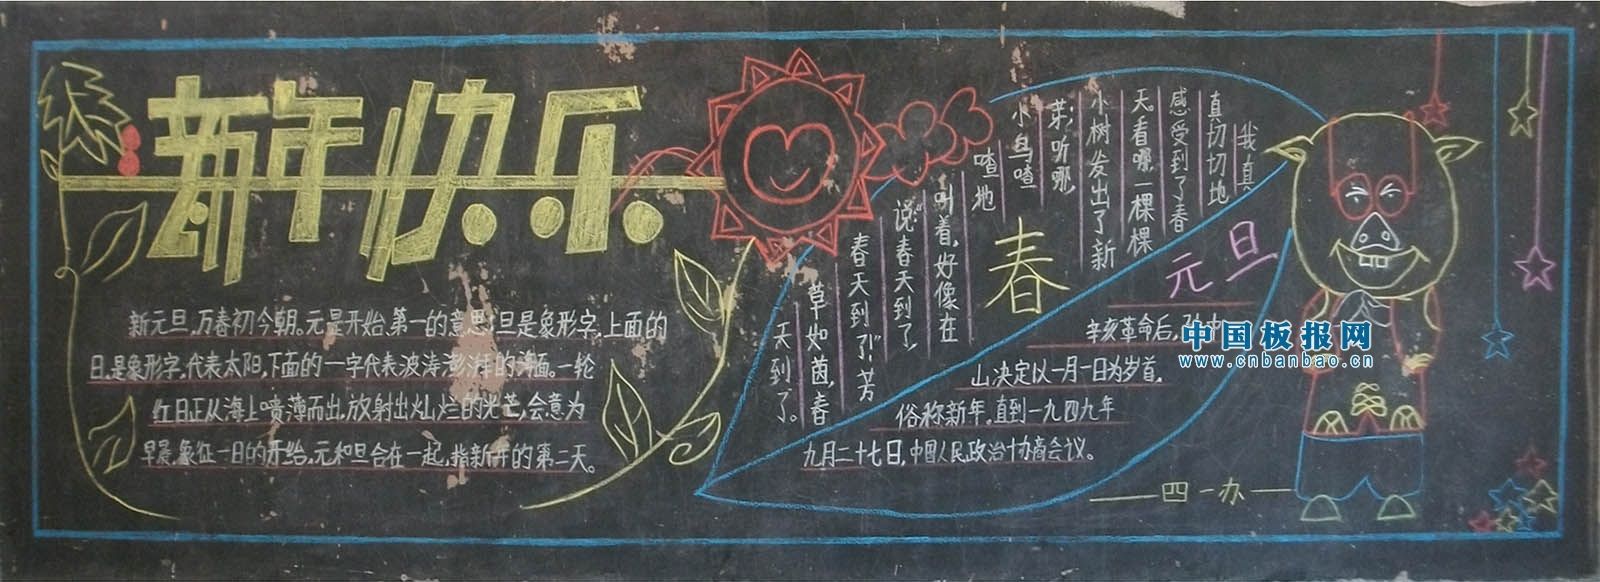 新年快乐
新元旦，万春初今朝。元是开始、第一的意思；旦是象形字，上面的
日，是象形字，代表太阳，下面的一字代表波涛澎湃的海面。一轮
红日正从海上喷薄而出，放射出灿烂的光芒，会意为
早晨，象征一日的开始，元和旦合在一起，指新年的第二天。
春
我真
真切切地
感受到了春
天。看哪，一棵棵
小树发出了新
芽；听哪，
小鸟喳
喳地
叫着，好像在
说：“春天到了，
春天到了！”芳
草如茵，春
天到了。
元旦
辛亥革命后，
山决定以一月一日为岁首，
俗称新年，直到一九四九年
九月二十七日，中国人民政治协商会议。
四一办
中国板报网
www.cnbanbao.cn